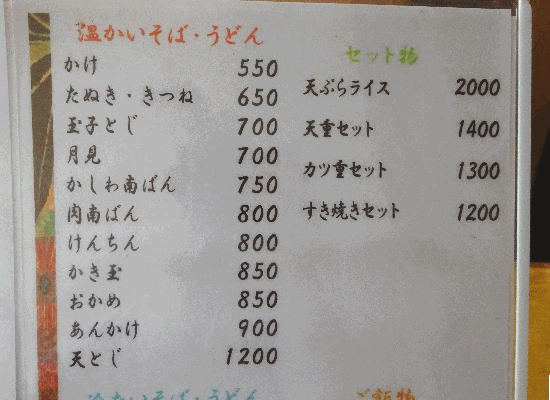 温かいそば・うどん
かけ 550
たぬき・きつね 650
玉子とじ 700
月見 700
かしわ南ばん 750
肉南ばん 800
けんちん 800
かき玉 850
おかめ 850
あんかけ 900
天とじ 1200
冷たいそば・うどん
セット物
天ぷらライス 2000
天重セット 1400
カツ重セット 1300
すき焼きセット 1200
ご飯物